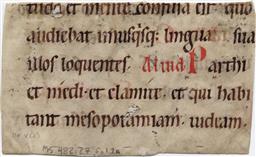 tudo et mente confusa est. quo
audiebat unusqsq; linguam sua
illos loquentes. Parthi
et medi et elamite. et qui habi
tant mesopotamiam. iudeam.
MS 482.27